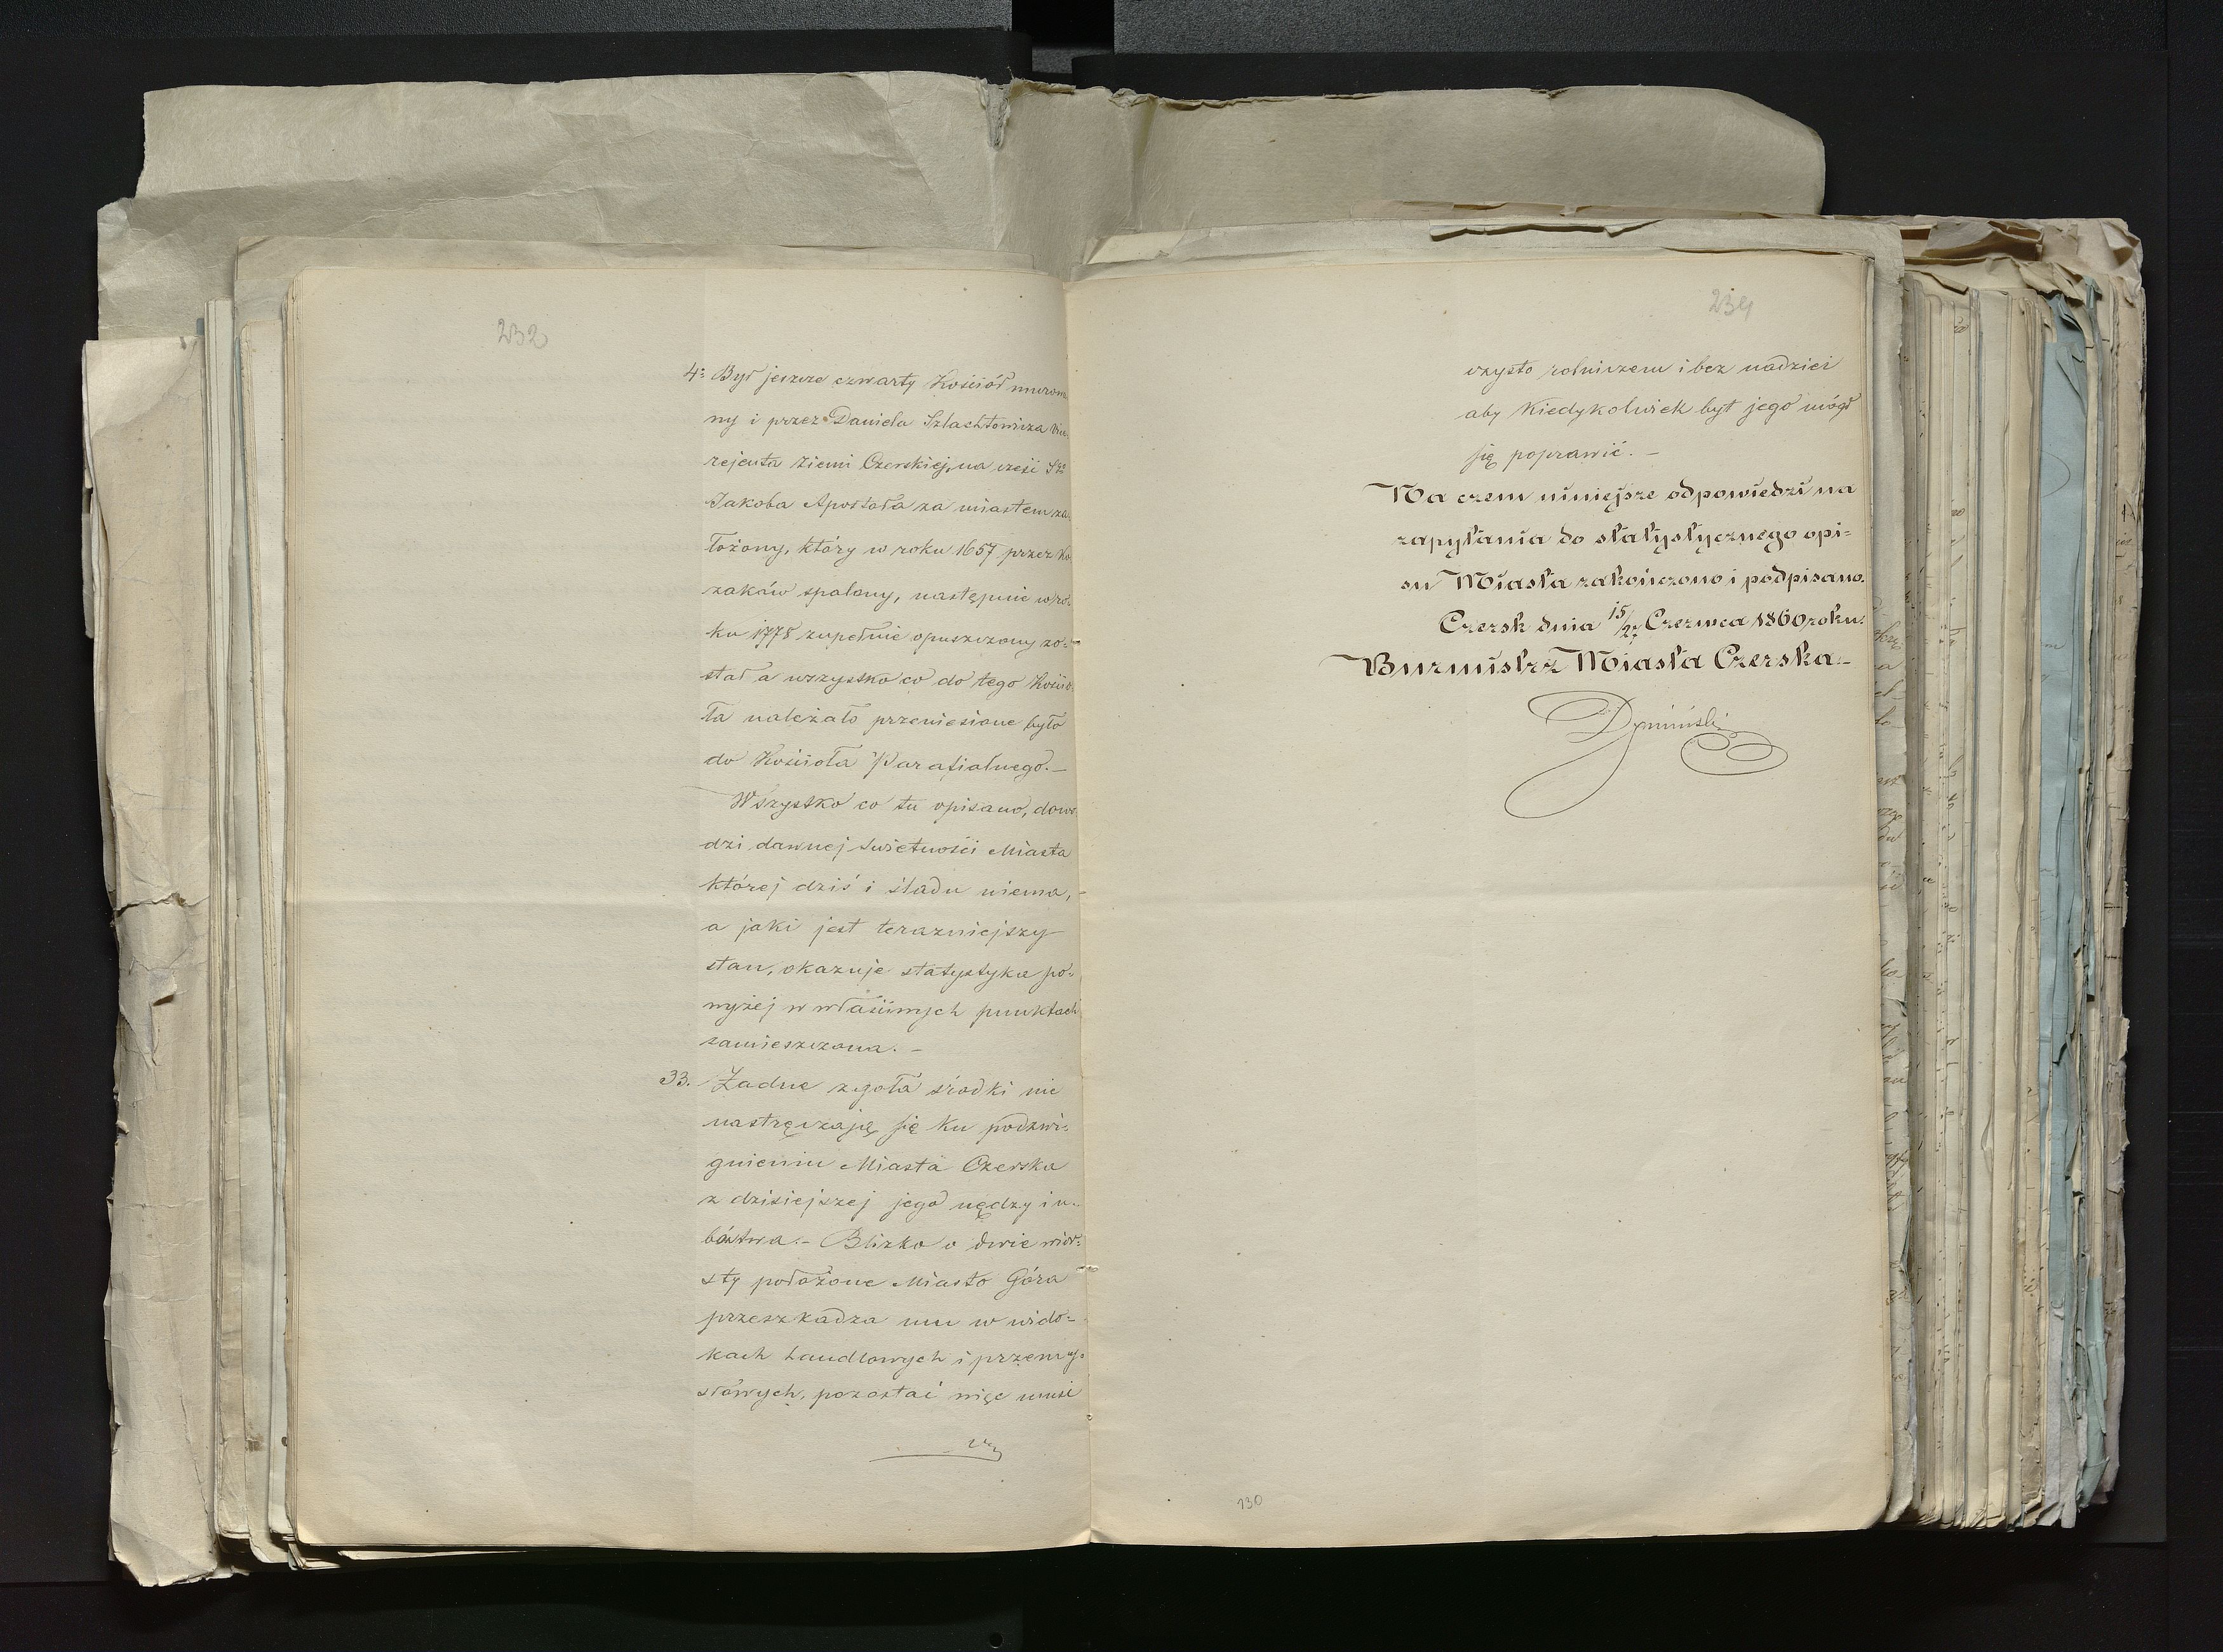 232
4= Był jeszcze czwarty Kościół murowa
ny i przez Daniela Szlachtowicza Vice
rejenta ziemi Czerskiej, na cześć Sgo
Jakoba Apostoła za miastem za=
łożony, który w roku 1657 przez Ko
zaków spalony, następnie w ro=
ku 1778 zupełnie opuszczony zo=
stał a wszystko co do tego Kościo=
ła należało przeniesione było
do Kościoła Parafialnego.–
Wszystko co tu opisano, dowo
dzi dawnej świetności Miasta
której dziś i śladu niema,
a jaki jest terazniejszy
stan, okazuje statystyka po=
wyżej w właściwych punktach
zamieszczona.–
33. Żadne zgoła środki nie
nastręczają się ku podzwi=
gnieniu Miasta Czerska
z dzisiejszej jego nędzy i u=
bóstwa.– Blizko o dwie wior=
sty położone Miasto Góra
przeszkadza mu w wido=
kach handlowych i przemy=
słowych, pozostać więc musi
234
czysto rolniczem i bez nadziei
aby kiedykolwiek byt jego mógł
się poprawić.–
Na czem niniejsze odpowiedzi na
zapytania do statystycznego opi=
su Miasta zakończono i podpisano.
Czersk dnia 15/27 Czerwca 1860 roku.
Burmistrz Miasta Czerska.–
Dymiński
130